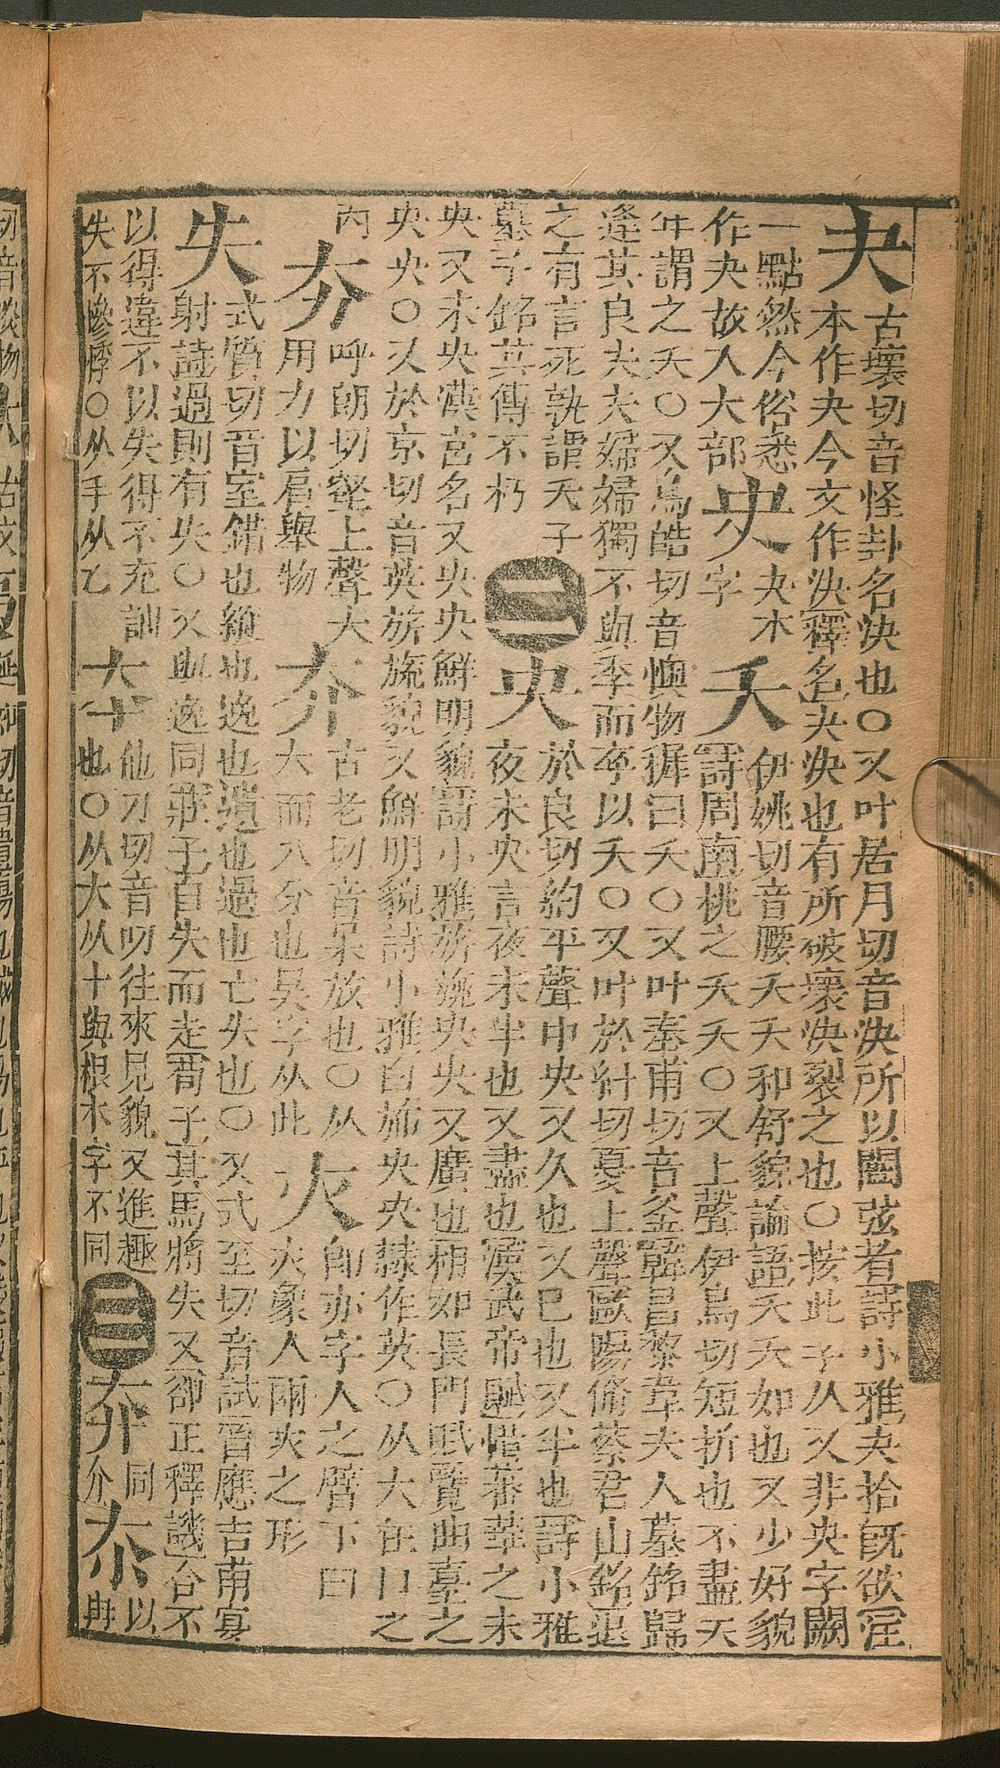 夬古壞切音怪卦名決也○又叶居月切音決所以闓弦者詩小雅夬拾旣佽㝎
本作夬今文作決釋名夬決也有所破壞決裂之也○按此字从又非央字闕
一點然今俗悉
作夬故入大部
夬夬本字
夭伊姚切音腰夭夭和舒貌論語夭夭如也又少好貌
詩周南桃之夭夭○又上聲伊鳥切短折也不盡天
年謂之夭○又烏皓切音懊物穉曰夭○又叶奉甫切音釜韓昌黎韋夫人墓銘歸
逢其良夫夫婦婦獨不與季而卒以夭○又叶於糾切憂上聲歐陽脩蔡君山銘退
之有言死孰謂夭子
墓予銘其傳不朽
二
央於良切約平聲中央又久也又已也又半也詩小雅
夜未央言夜未半也又盡也漢武帝賦惜蕃華之未
央又未央漢宮名又央央鮮明貌詩小雅旂旐央央又廣也相如長門賦覽曲臺之
央央○又於京切音英旂旐貌又鮮明貌詩小雅白斾央央隸作英○从大在冂之
內
夯呼朗切壑上聲大
用力以肩舉物
夰古老切音杲放也○从
大而八分也昊字从此
㚒卽亦字人之臂下曰
㚒象人兩㚒之形
失式質切音室錯也縱也逸也遺也過也亡失也○又式至切音試晉應吉甫宴
射詩過則有失○又與逸同莊子自失而走荀子其馬將失又郤正釋譏合不
以得違不以失得不充訓
失不慘悸○从手从乙
夲他刀切音叨往來見貌又進趣
也○从大从十與根本字不同
三
夰同以
夰冉